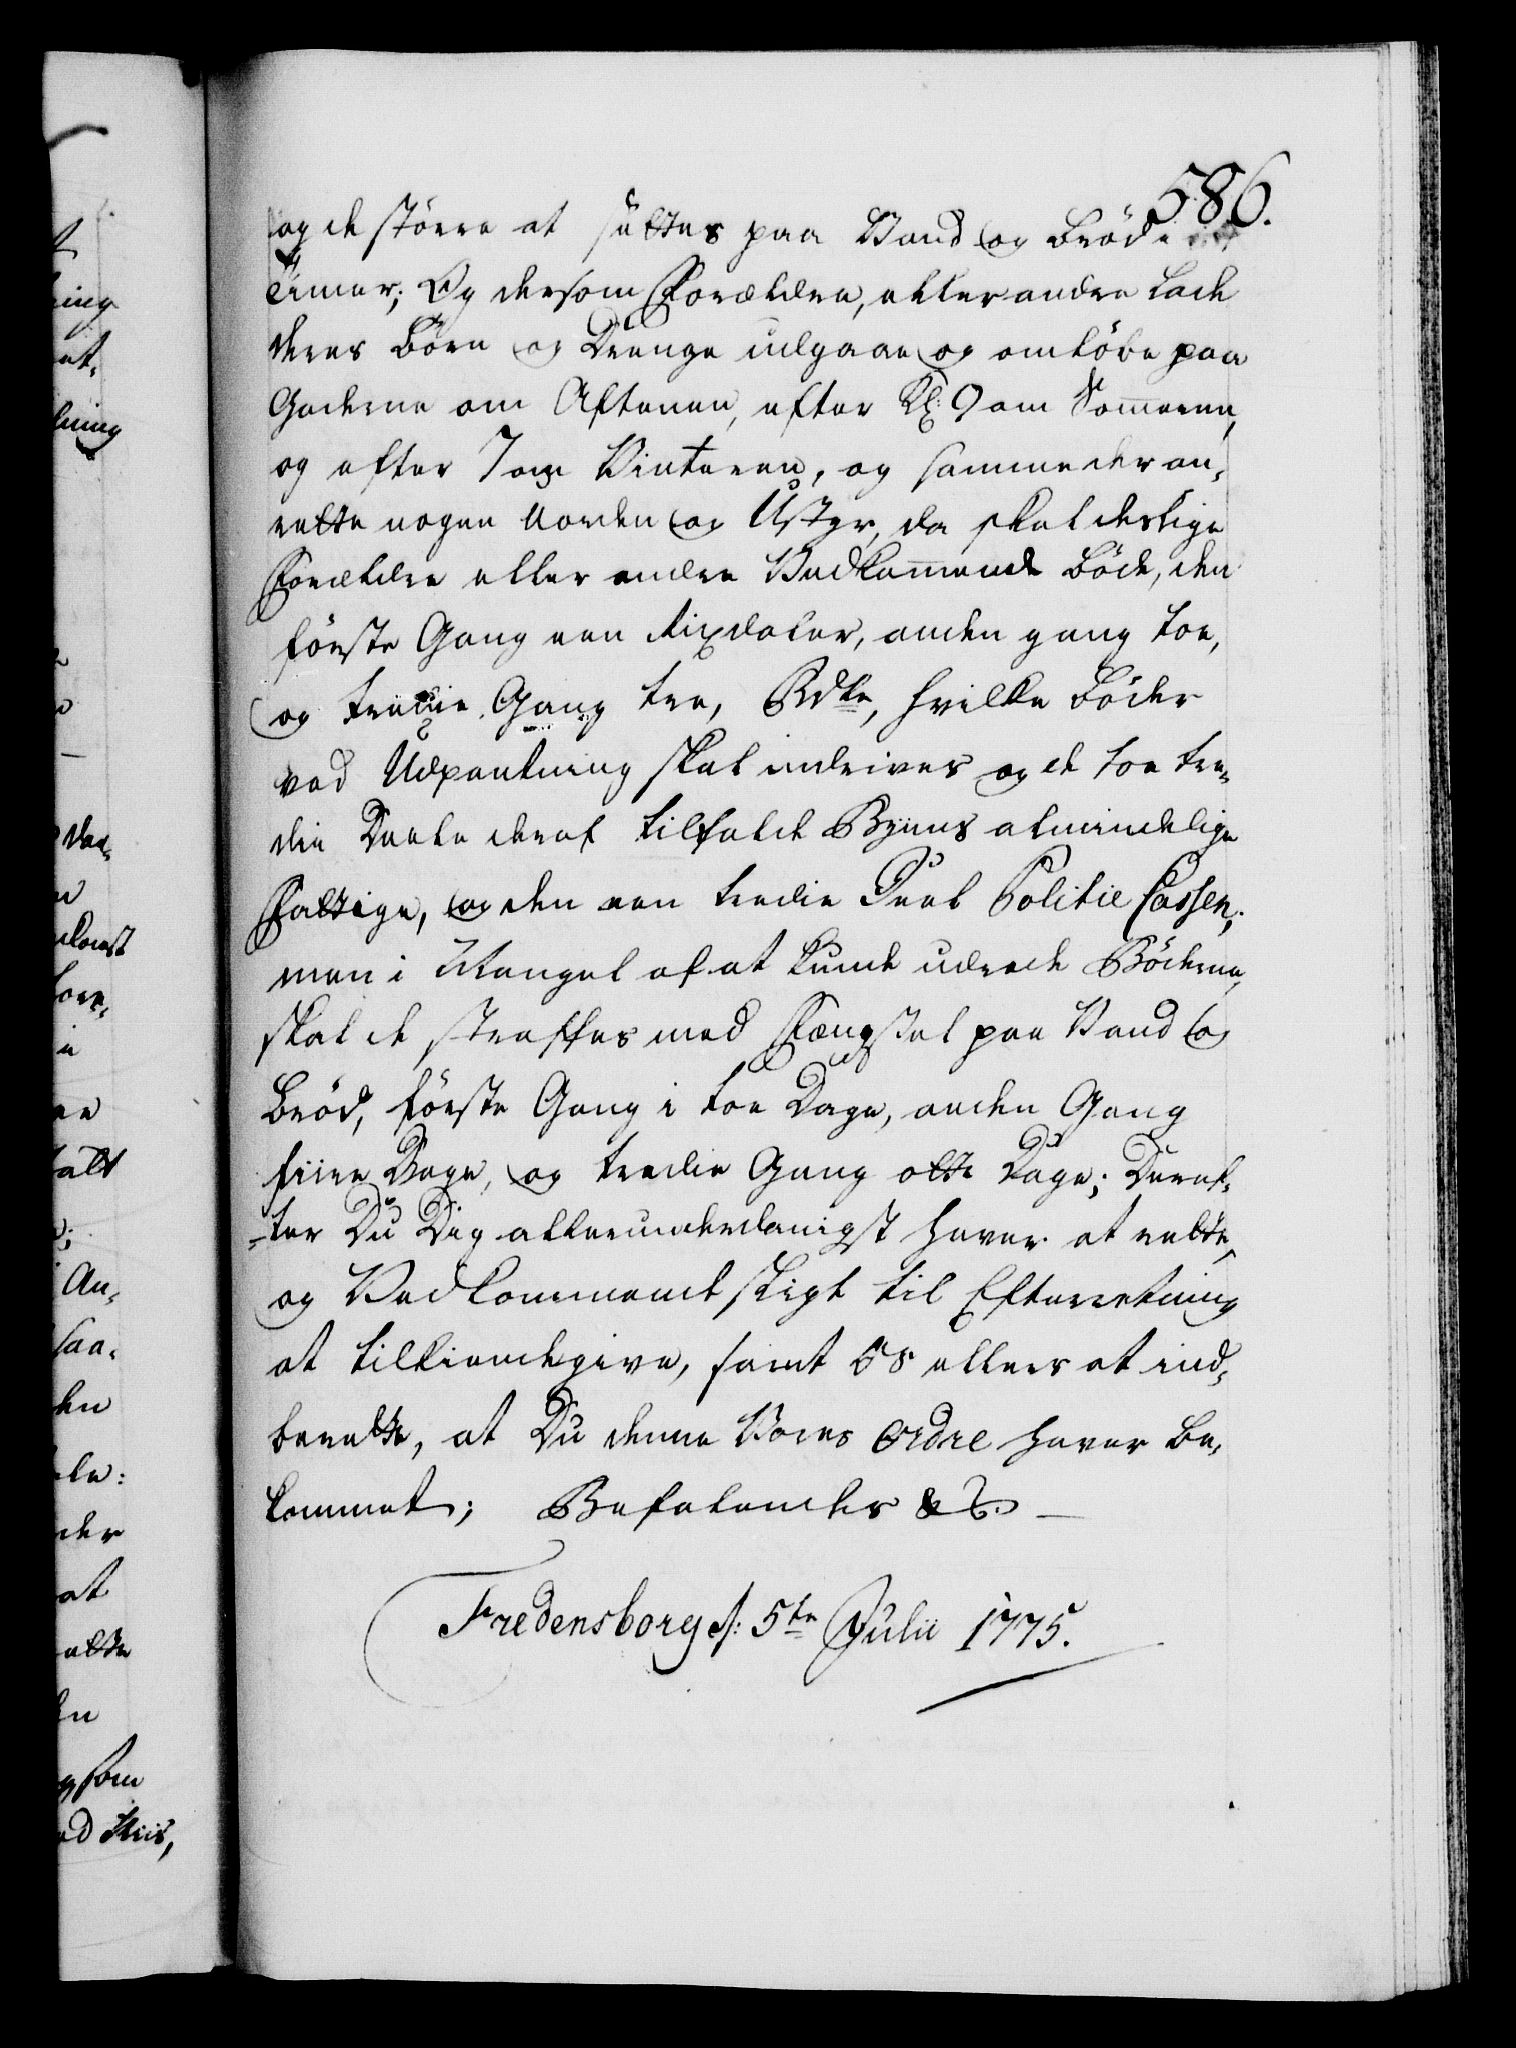 586.
og de större at sættes paa Vand og Bröd i
Timer; Og dersom Forældre, eller andre lade
deres Börn og Drenge udgaae og omlöbe paa
Gaderne om Aftenen, efter Kl: 9 om Sommeren,
og efter 7 om Vinteren, og samme der an-
rette nogen Uorden og Ustyr, da skal deslige
Forældre eller andre Vedkommende böde, den
förste Gang een Rixdaler, anden gang toe,
og tredie Gang tre, Rdlr, hvilke Böder
ved Udpantning skal inddrives og de toe tre-
die Deele deraf tilfalde Byens almindelige
Fattige, og den een tredie Deel Politie Cassen;
men i Mangel af at kunde udrede Böderne,
skal de straffes med Fængsel paa Vand og
Bröd, förste Gang i toe Dage, anden Gang
fiire Dage, og tredie Gang otte Dage; Deref-
-ter Du Dig allerunderdanigst haver at rette,
og Vedkommende sligt til Efterretning
at tilkiendegive, samt Os ellers at ind-
berette, at Du denne Vores Ordre haver be-
kommet; Befalendes &c. —
Fredensborg d: 5te Julii 1775.
ing
et.
ning
daa-
komst
fore-
i
talt
An-
saa-
den
ele:
der
at
ette
som
ed Riis,